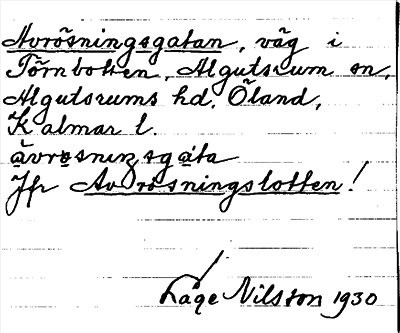 Avrösningsgatan, väg i
Törnbotten, Algutsrum sn,
Algutsrums hd, Öland,
Kalmar l.
àvrosnıŋsgáta
Jfr Avrösningslotten!
Låge Nilsson 1930